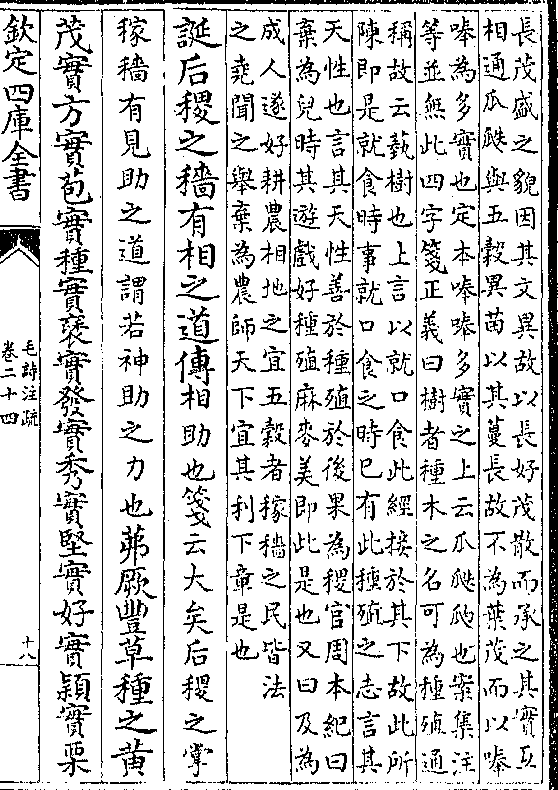 長茂盛之貌因其文異故以長好茂散而承之其實互
相通瓜瓞與五穀異苗以其蔓長故不為葉茂而以唪
唪為多實也定本唪唪多實之上云瓜瓞瓝也案集注
等並無此四字箋正義曰樹者種木之名可為種殖通
稱故云蓺樹也上言以就口食此經接於其下故此所
陳即是就食時事就口食之時已有此種殖之志言其
天性也言其天性善於種殖於後果為稷官周本紀曰
棄為兒時其遊戲好種殖麻麥美即此是也又曰及為
成人遂好耕農相地之宜五穀者稼穡之民皆法
之堯聞之舉棄為農師天下宜其利下章是也
誕后稷之穡有相之道傳相助也箋云大矣后稷之掌
稼穡有見助之道謂若神助之力也茀厥豐草種之黃
茂實方實苞實種實襃實發實秀實堅實好實穎實栗
欽定四庫全書
毛詩注疏
卷二十四
十八